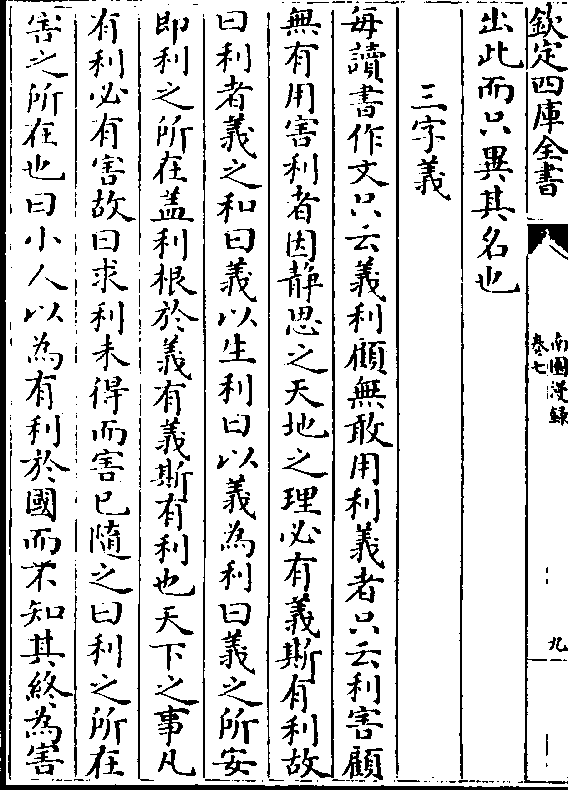 欽定四庫全書
南園漫錄
卷七
九
出此而只異其名也
三字義
每讀書作文只云義利顧無敢用利義者只云利害顧
無有用害利者因靜思之天地之理必有義斯有利故
曰利者義之和曰義以生利曰以義為利曰義之所安
即利之所在盖利根於義有義斯有利也天下之事凡
有利必有害故曰求利未得而害已隨之曰利之所在
害之所在也曰小人以為有利於國而不知其終為害